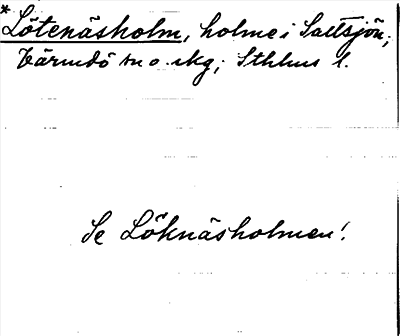 * Lötenäsholm, holme i Saltsjön;
Värmdö sn o. skg; Sthlms l.
Se Löknäsholmen!